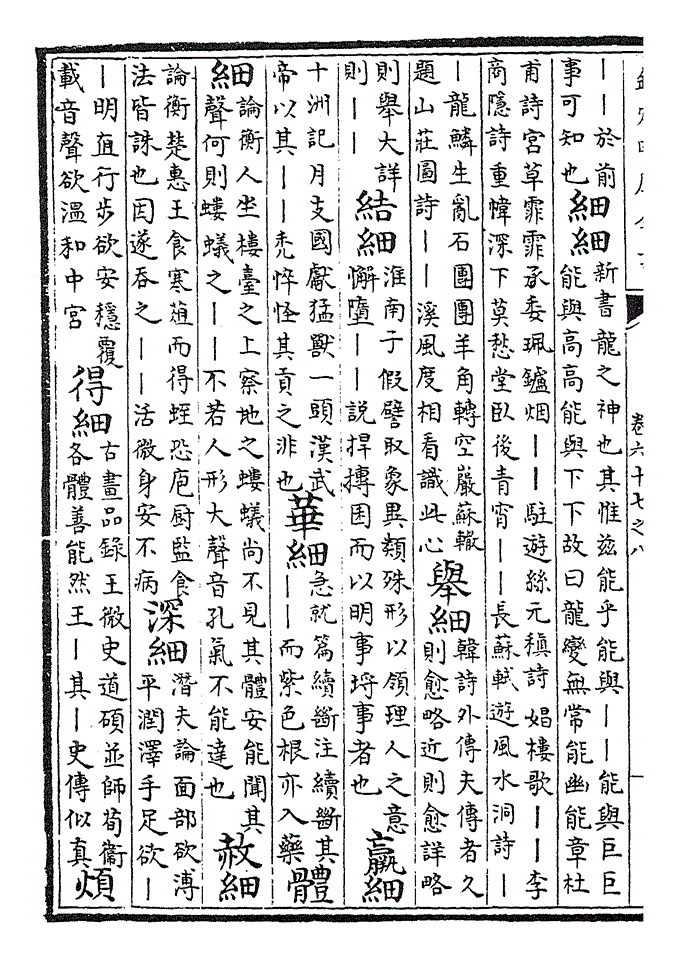 卷六十七之八
——於前
事可知也
細細
新書龍之神也其惟兹能乎能與——能與巨巨
能與高高能與下下故曰龍變無常能幽能章杜
甫詩宮草霏霏承委珮鑪烟——駐遊絲元稹詩娼樓歌——李
商隱詩重幃深下莫愁堂臥後青宵——長蘇軾遊風水洞詩—
—龍鱗生亂石團團羊角轉空巖蘇轍
題山莊圖詩——溪風度相看識此心
舉細
韓詩外傳夫傳者久
則愈略近則愈詳略
則舉大詳
則——
結細
淮南子假譬取象異類殊形以領理人之意
懈墮——説捍摶困而以明事埓事者也
羸細
十洲記月支國獻猛獸一頭漢武
帝以其——禿悴怪其貢之非也
華細
急就篇續斷注續斷其
——而紫色根亦入藥
體
細
論衡人坐樓臺之上察地之螻蟻尚不見其體安能聞其
聲何則螻蟻之——不若人形大聲音孔氣不能達也
赦細
論衡楚惠王食寒葅而得蛭恐庖厨監食
法皆誅也因遂吞之——活微身安不病
深細
潛夫論面部欲溥
平潤澤手足欲—
—明直行步欲安穩覆
載音聲欲溫和中宮
得細
古畫品錄王微史道碩並師荀衞
各體善能然王—其—史傳似真
煩